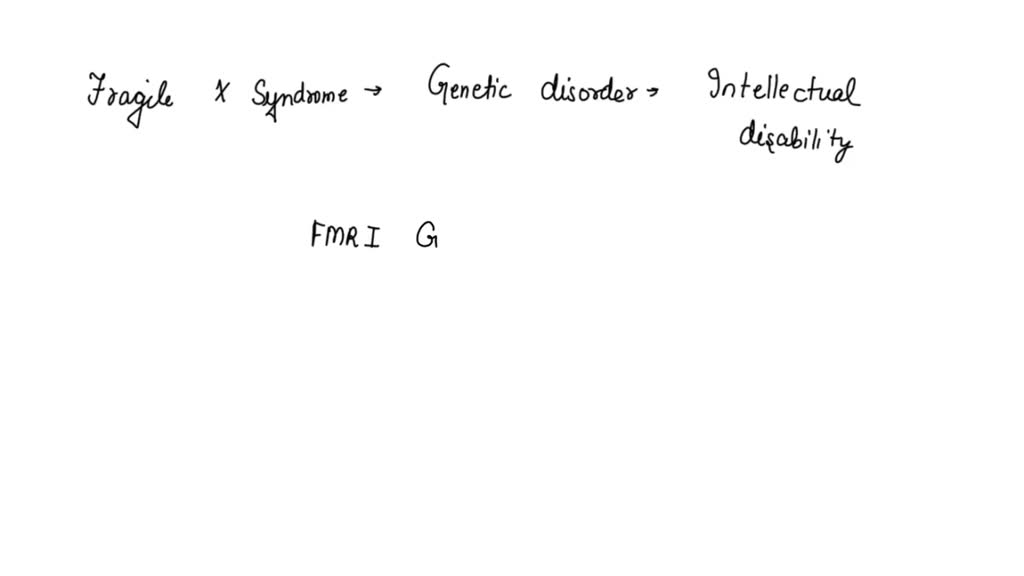 Fragile X Syndrome → Genetic disorder → Intellectual
disability
FMRI G